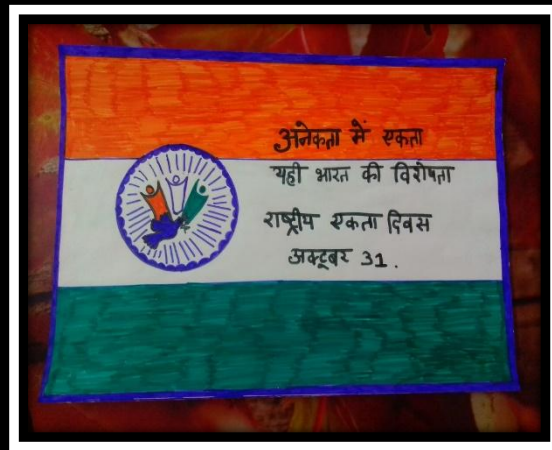 अनेकता में एकता
यही भारत की विशेषता
राष्ट्रीय एकता दिवस
अक्टूबर 31.